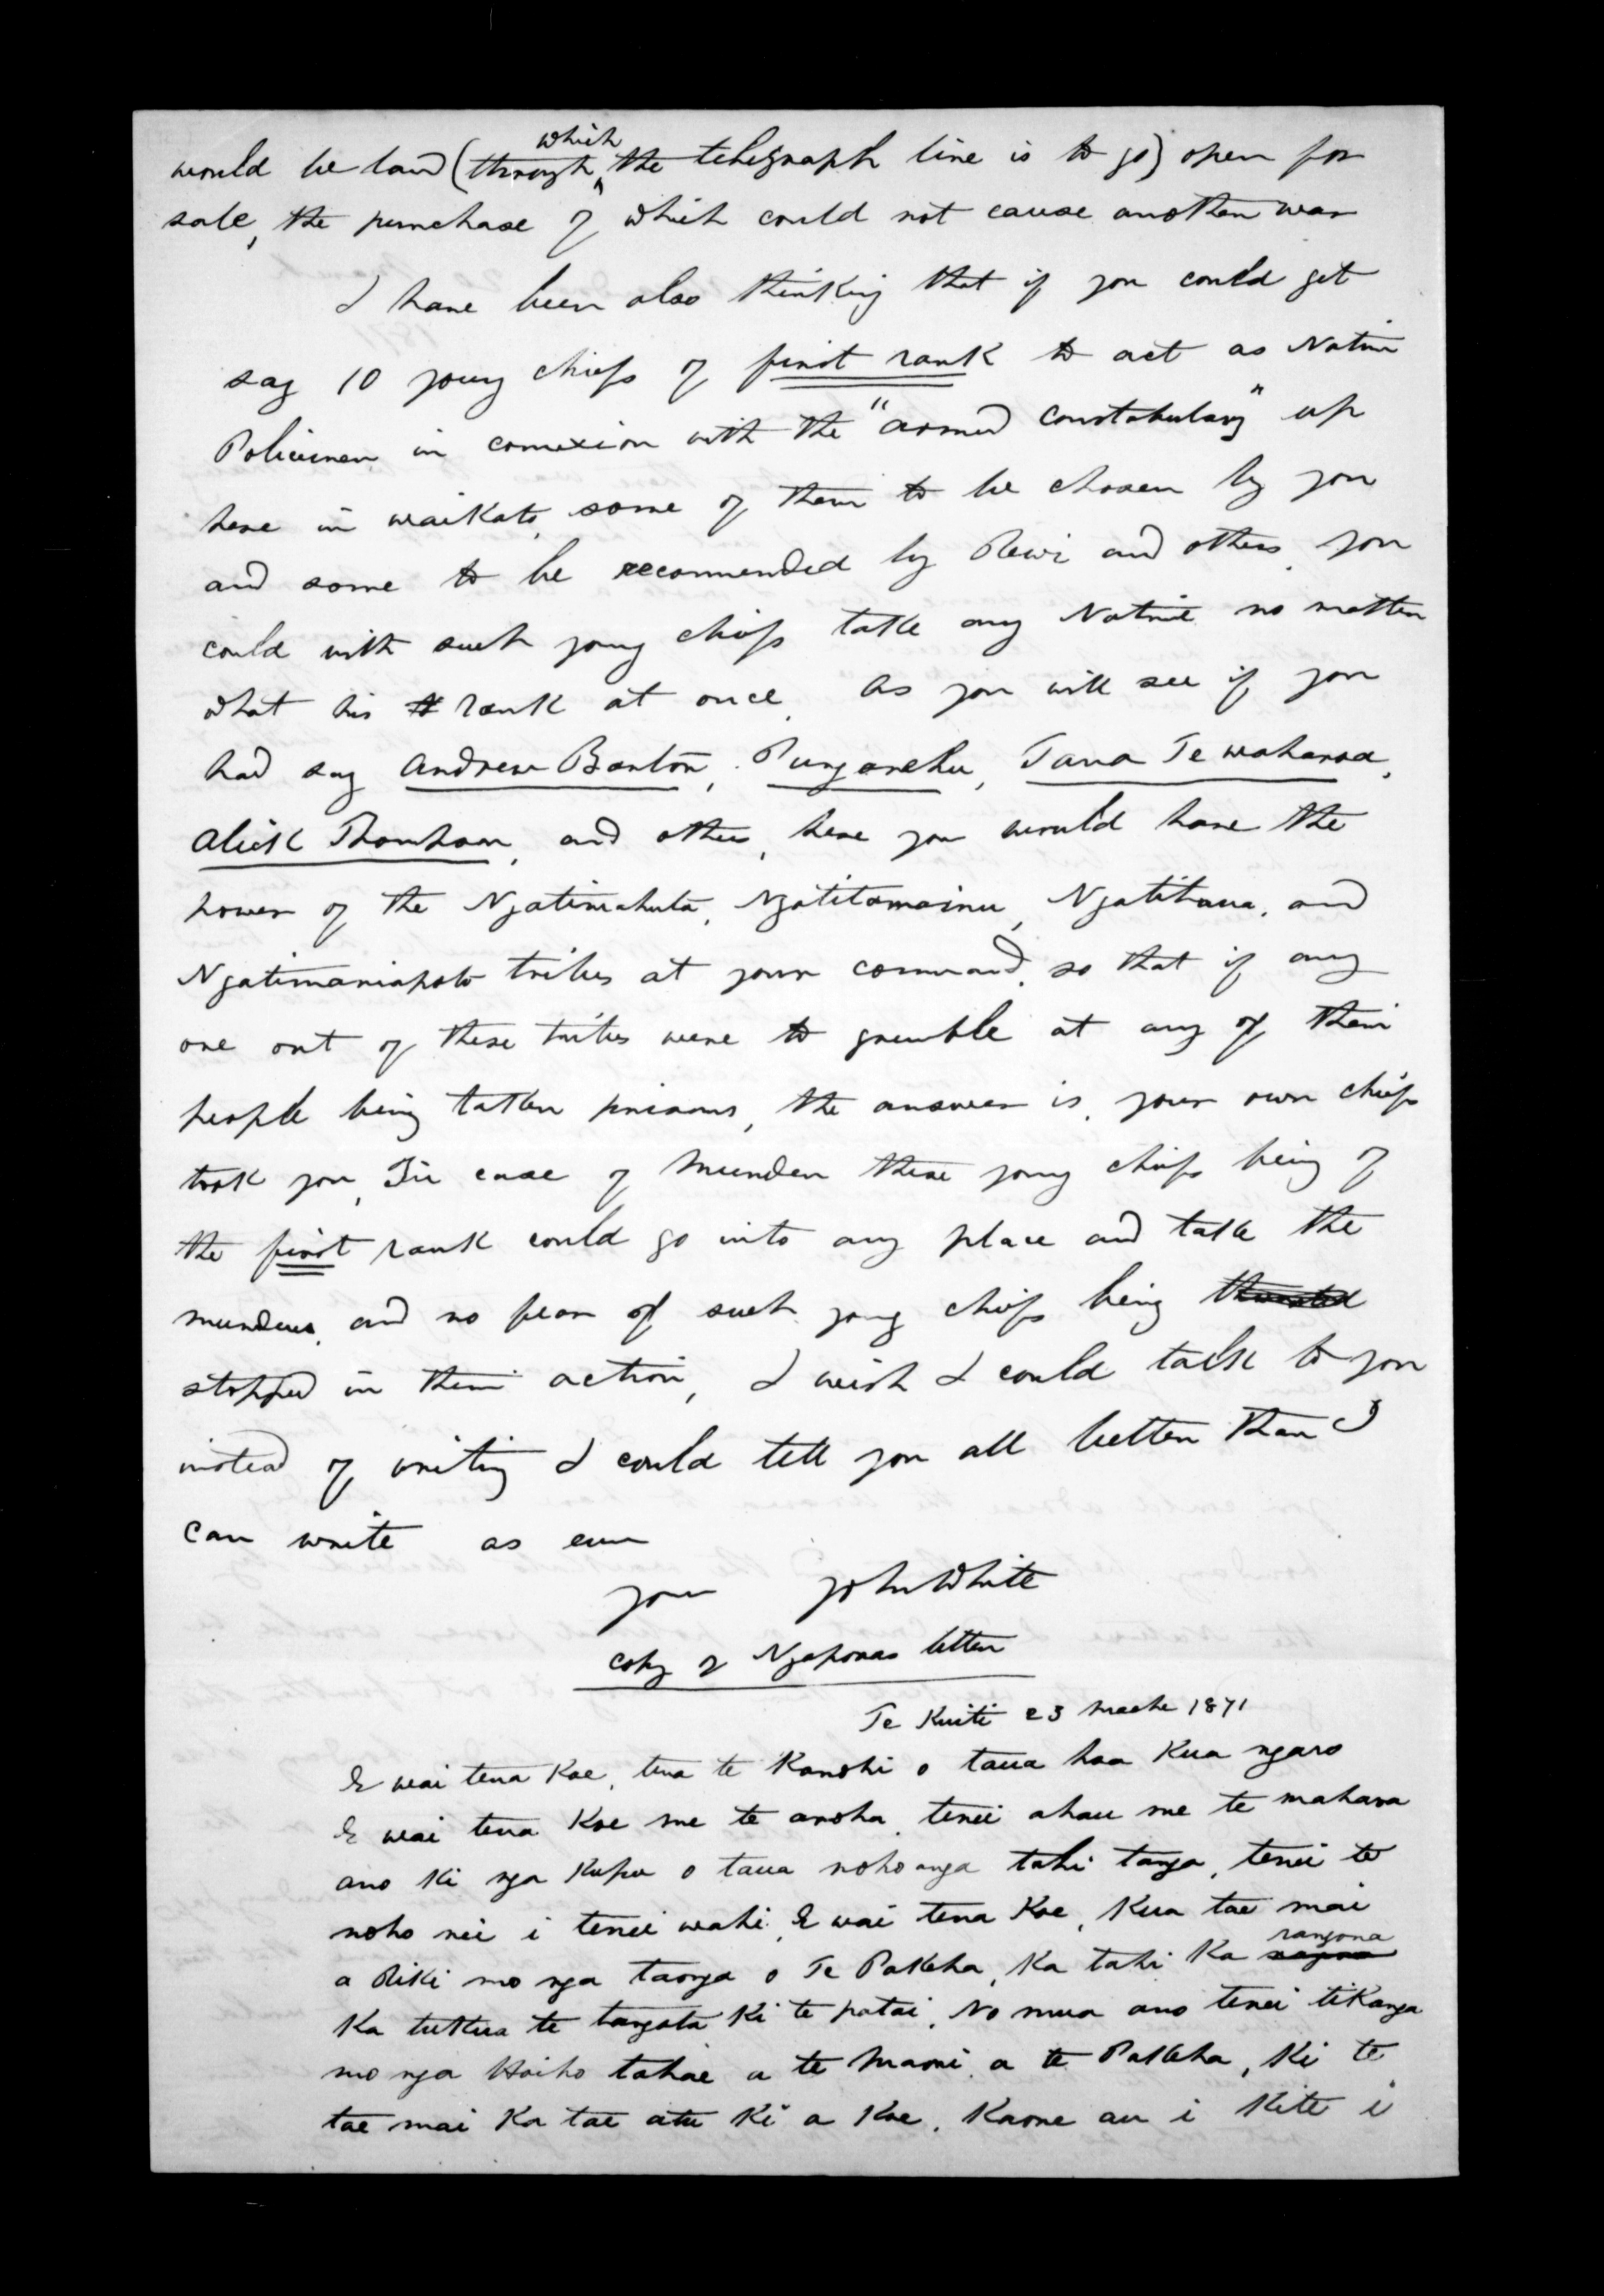 would be land (through which the telegraph line is to go) open for
sale, the purchase of which could not cause another war
I have been also thinking that if you could get
say 10 young chiefs of first rank to act as Native
Policemen in connexion with the "armed constabulary" up
here in Waikato, some of them to be chosen by you
and some to be recommended by Rewi and others, you
could with such young chiefs take any Native no matter
what his rank at once, as you will see if you
had say Andrew Barton, Pungarehu, Tana Te Waharoa,
Alick Thomson, and others, here you would have the
power of the Ngatimahuta, Ngatitamainu, Ngatihaua, and
Ngatimaniapoto tribes at your command, so that if any
one out of these tribes were to grumble at any of their
people being taken prisoners, the answer is, your own chiefs
took you, In case of Murder these young chiefs being of
the first rank could go into any place and take the
murderer, and no fear of such young chiefs being thwarted
stopped in their action, I wish I could talk to you
instead of writing I could tell you all better than I
can write as ever
your John White
copy of Ngaporas letter
Te Kuiti 23 Maehe 1871
E wai tena koe, tena te kanohi o taua hoa kua ngaro
E wai tena koe me te aroha, tenei ahau me te mahara
ano ki nga kupu o taua nohoanga tahi tanga, tenei te
noho nei i tenei wahi, E wai tena koe, kua tae mai
a Riki mo nga taonga o Te Pakeha, ka tahi ka rangona
ka tukua te tangata ki te patai, No mua ano tenei tikanga
mo nga Hoiho tahae a te Maori, a te Pakeha, ki te
tae mai ka tae atu ki a koe, kaore au i kite i